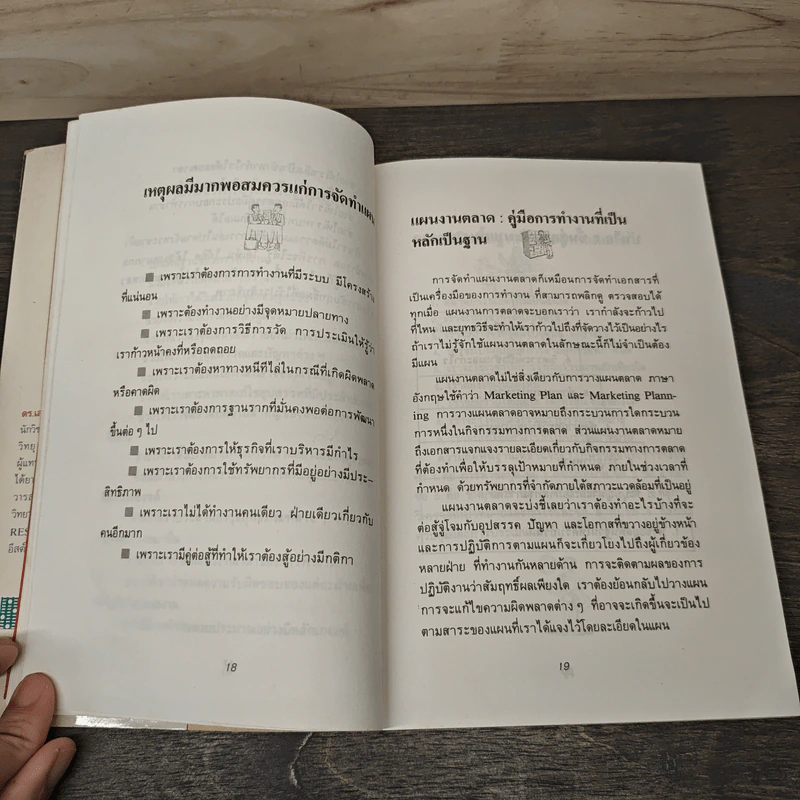 เหตุผลมีมากพอสมควรแก่การจัดทำแผน
■ เพราะเราต้องการการทำงานที่มีระบบ มีโครงสร้าง
ที่แน่นอน
■ เพราะต้องทำงานอย่างมีจุดหมายปลายทาง
■ เพราะเราต้องการวิธีการวัด การประเมินให้รู้ว่า
เราก้าวหน้าคงที่หรือถดถอย
■ เพราะเราต้องหาทางหนีทีไล่ในกรณีที่เกิดผิดพลาด
หรือคาดผิด
■ เพราะเราต้องการฐานรากที่มั่นคงพอต่อการพัฒนา
ขึ้นต่อ ๆ ไป
■ เพราะเราต้องการให้ธุรกิจที่เราบริหารมีกำไร
■ เพราะเราต้องการใช้ทรัพยากรที่มีอยู่อย่างมีประ-
สิทธิภาพ
■ เพราะเราไม่ได้ทำงานคนเดียว ฝ่ายเดียวเกี่ยวกับ
คนอีกมาก
■ เพราะเรามีคู่ต่อสู้ที่ทำให้เราต้องสู้อย่างมีกติกา
18
แผนงานตลาด : คู่มือการทำงานที่เป็น
หลักเป็นฐาน
การจัดทำแผนงานตลาดก็เหมือนการจัดทำเอกสารที่
เป็นเครื่องมือของการทำงาน ที่สามารถพลิกดู ตรวจสอบได้
ทุกเมื่อ แผนงานการตลาดจะบอกเราว่า เรากำลังจะก้าวไป
ที่ไหน และยุทธวิธีจะทำให้เราก้าวไปถึงที่จัดวางไว้เป็นอย่างไร
ถ้าเราไม่รู้จักใช้แผนงานตลาดในลักษณะนี้ก็ไม่จำเป็นต้อง
มีแผน
แผนงานตลาดไม่ใช่สิ่งเดียวกับการวางแผนตลาด ภาษา
อังกฤษใช้คำว่า Marketing Plan และ Marketing Plann-
ing การวางแผนตลาดอาจหมายถึงกระบวนการใดกระบวน
การหนึ่งในกิจกรรมทางการตลาด ส่วนแผนงานตลาดหมาย
ถึงเอกสารแจกแจงรายละเอียดเกี่ยวกับกิจกรรมทางการตลาด
ที่ต้องทำเพื่อให้บรรลุเป้าหมายที่กำหนด ภายในช่วงเวลาที่
กำหนด ด้วยทรัพยากรที่จำกัดภายใต้สภาวะแวดล้อมที่เป็นอยู่
แผนงานตลาดจะบ่งชี้เลยว่าเราต้องทำอะไรบ้างที่จะ
ต่อสู้จู่โจมกับอุปสรรค ปัญหา และโอกาสที่ขวางอยู่ข้างหน้า
และการปฏิบัติการตามแผนก็จะเกี่ยวโยงไปถึงผู้เกี่ยวข้อง
หลายฝ่าย ที่ทำงานกันหลายด้าน การจะติดตามผลของการ
ปฏิบัติงานว่าสัมฤทธิ์ผลเพียงใด เราต้องย้อนกลับไปวางแผน
การจะแก้ไขความผิดพลาดต่าง ๆ ที่อาจจะเกิดขึ้นจะเป็นไป
ตามสาระของแผนที่เราได้แจงไว้โดยละเอียดในแผน
19